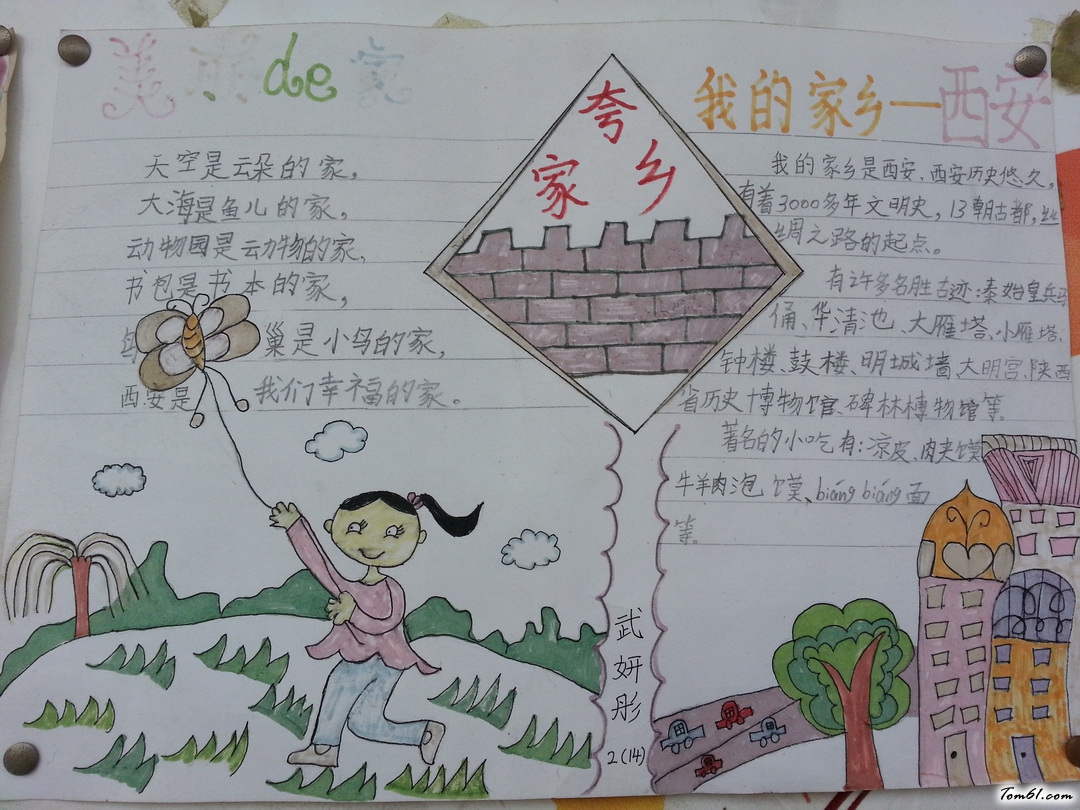 美丽de家
天空是云朵的家，
大海是鱼儿的家，
动物园是动物的家，
书包是书本的家，
巢是小鸟的家，
西安是我们幸福的家。
夸
家乡
我的家乡—西安
我的家乡是西安、西安历史悠久，
有着3000多年文明史，13朝古都，丝
绸之路的起点。
有许多名胜古迹：秦始皇兵马
俑、华清池、大雁塔、小雁塔、
钟楼、鼓楼、明城墙、大明宫、陕西
省历史博物馆、碑林博物馆等。
著名的小吃有：凉皮、肉夹馍
牛羊肉泡馍、biángbiáng面
等。
武妍彤
2(14)
Tom61.com